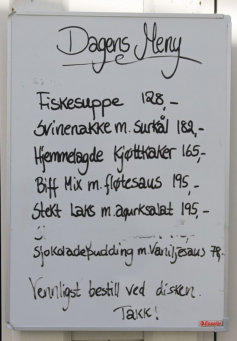 Dagens Meny
Fiskesuppe 128,-
Svinenakke m. surkål 182,-
Hjemmelagde kjøttkaker 165,-
Biff Mix m. fløtesaus 195,-
Stekt Laks m. agurksalat 195,-
Sjokoladepudding m. Vaniljesaus 78,-
Vennligst bestill ved disken.
Takk!